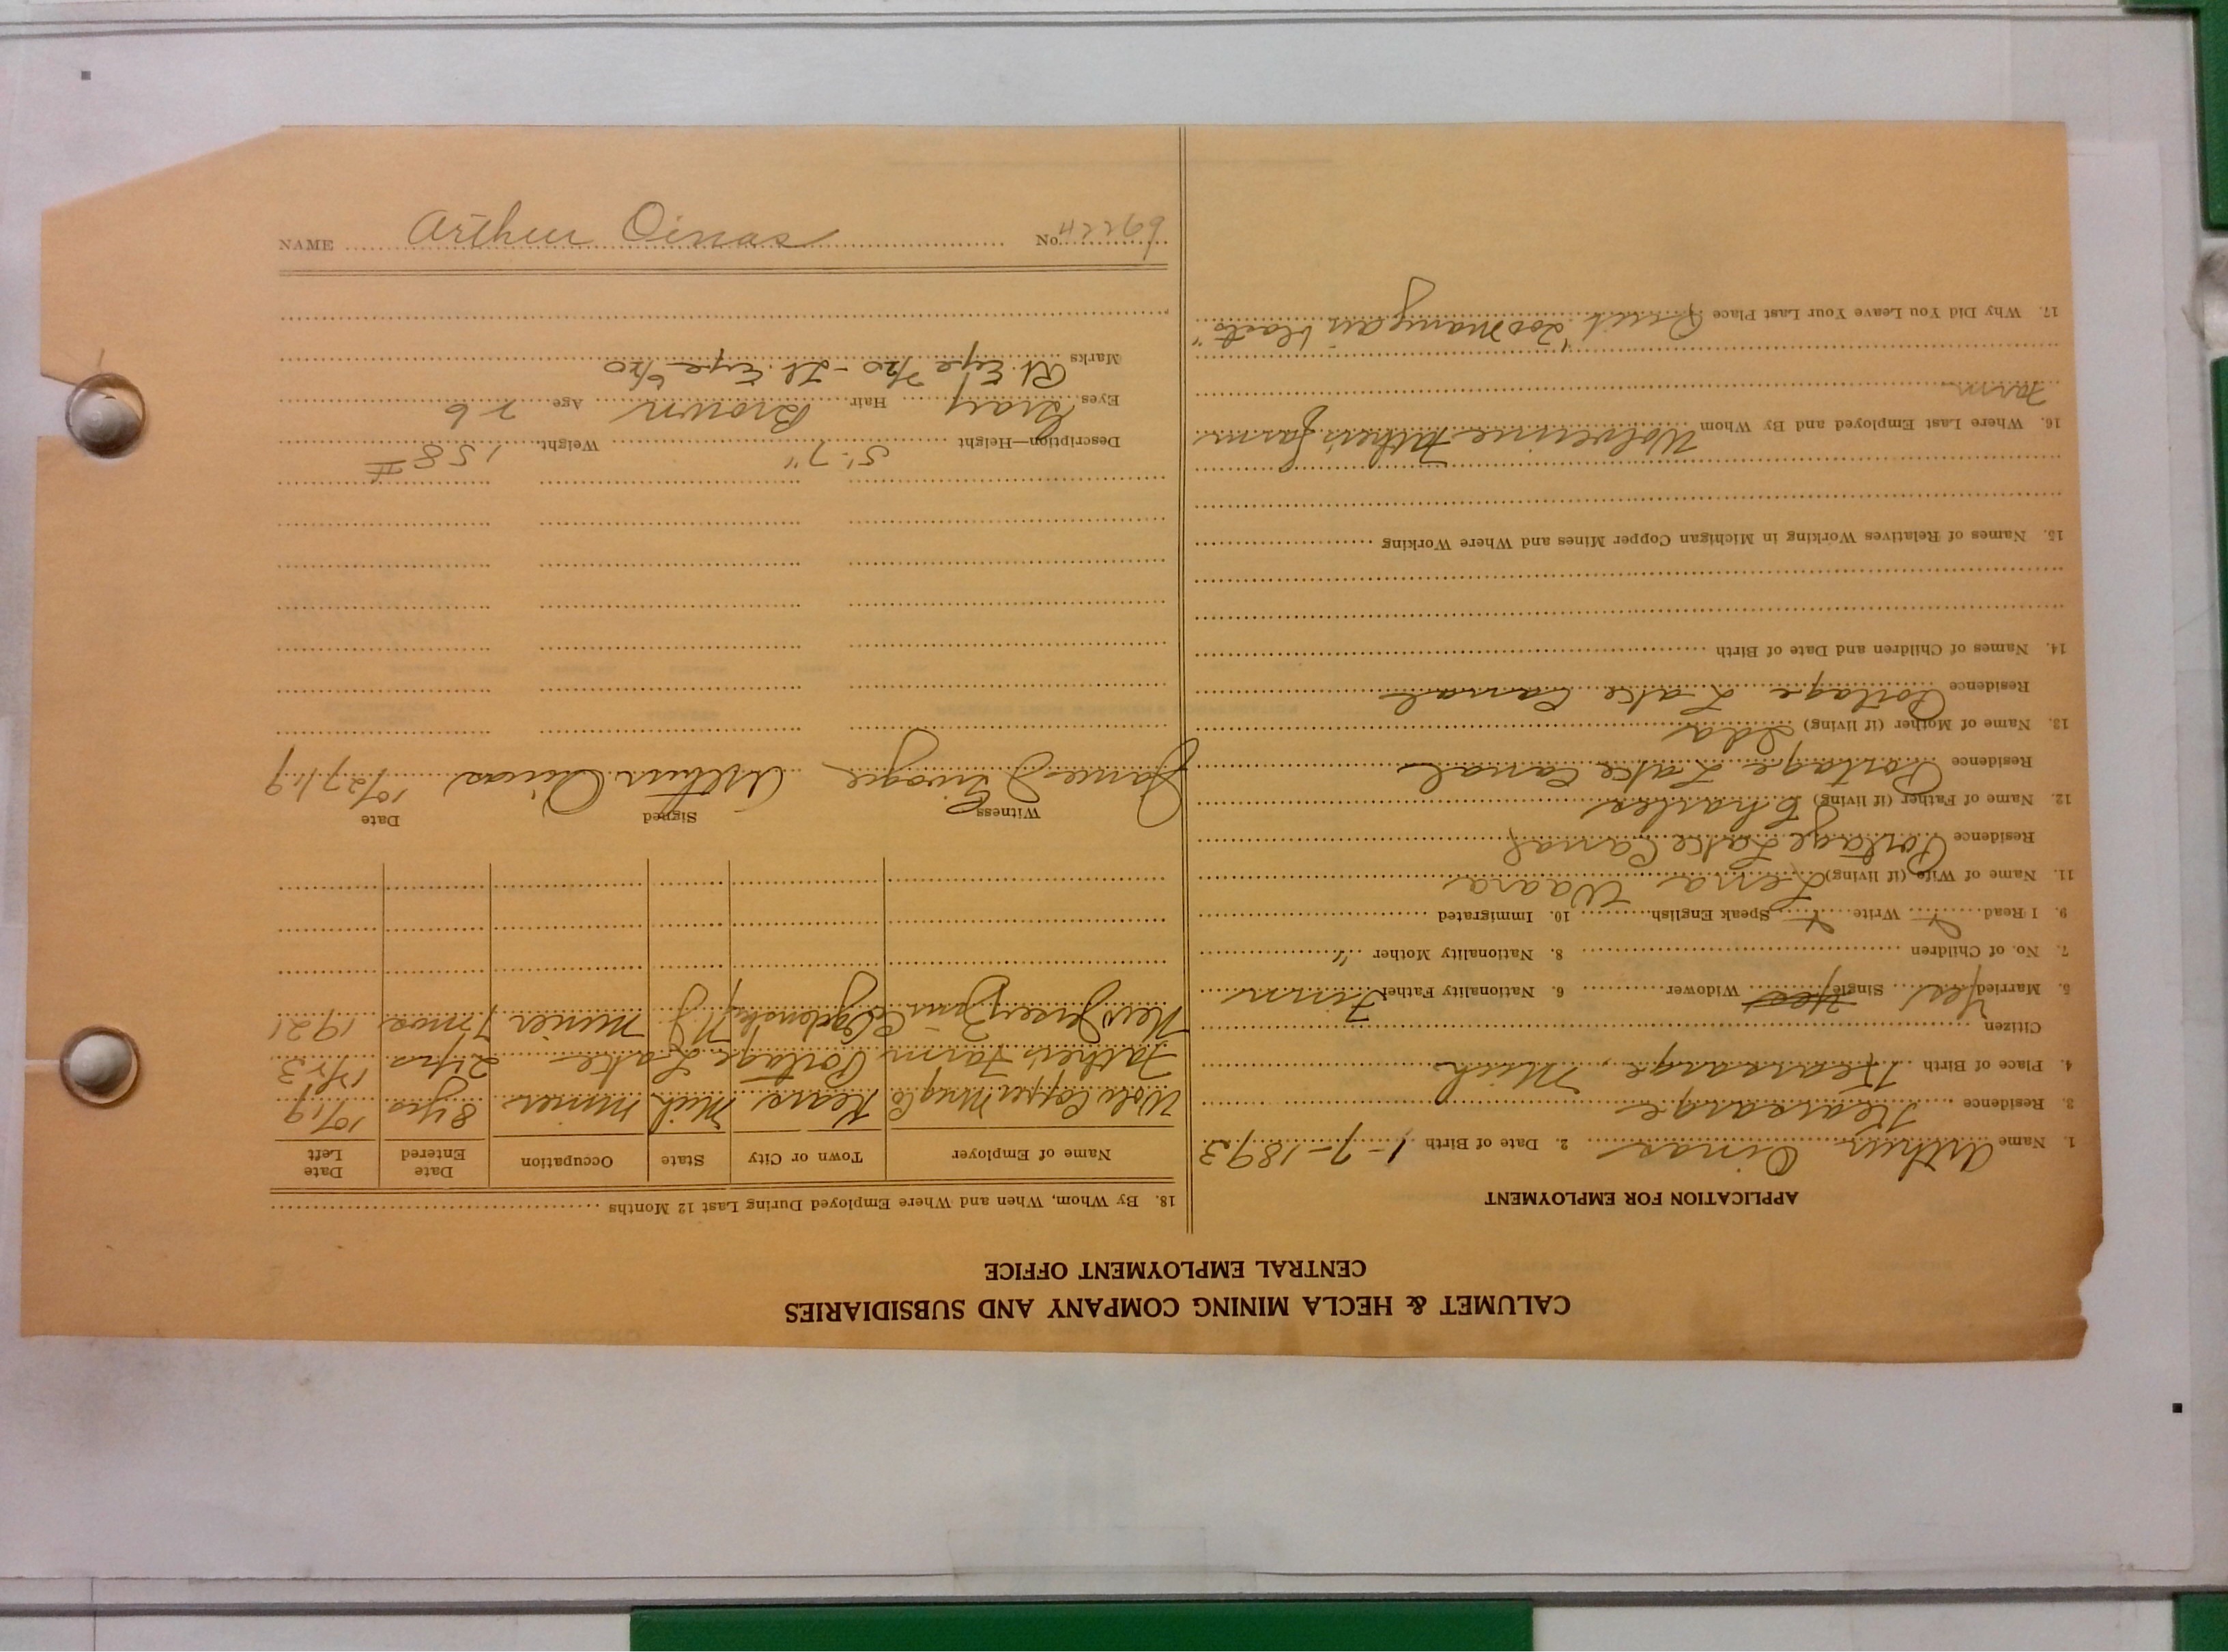 CALUMET & HECLA MINING COMPANY AND SUBSIDIARIES
CENTRAL EMPLOYMENT OFFICE
APPLICATION FOR EMPLOYMENT
1. Name Arthur Oinas 2. Date of Birth 1-7-1893
3. Residence Kearsarge
4. Place of Birth Kearsarge, Mich
Citizen
5. Married Yes Single Yes Widower 6. Nationality Father Finn
7. No. of Children 8. Nationality Mother "
9. I Read Write Speak English 10. Immigrated
11. Name of Wife (if living) Lena Waara
Residence Portage Lake Canal
12. Name of Father (if living) Charles
Residence Portage Lake Canal
13. Name of Mother (if living) Ida
Residence Portage Lake Canal
14. Names of Children and Date of Birth
15. Names of Relatives Working in Michigan Copper Mines and Where Working
16. Where Last Employed and By Whom Wolverine Father's farm
Farm
17. Why Did You Leave Your Last Place Quit "too many air blasts"
18. By Whom, When and Where Employed During Last 12 Months
Name of Employer Town or City State Occupation Date Entered Date Left
Wolv Copper Mng Co Kears Mich miner 8 yrs 10/19
Fathers Farm Portage Lake 2 yrs
New Jersey Zinc Co N.J. miner 7 mos 1921
Witness Signed Date
Arthur Oinas 10/27/19
Description—Height 5'-7" Weight 158 #
Eyes Gray Hair Brown Age 26
Marks Rt. Eye 7/20 - Lt. Eye 6/20
NAME Arthur Oinas No. 42269